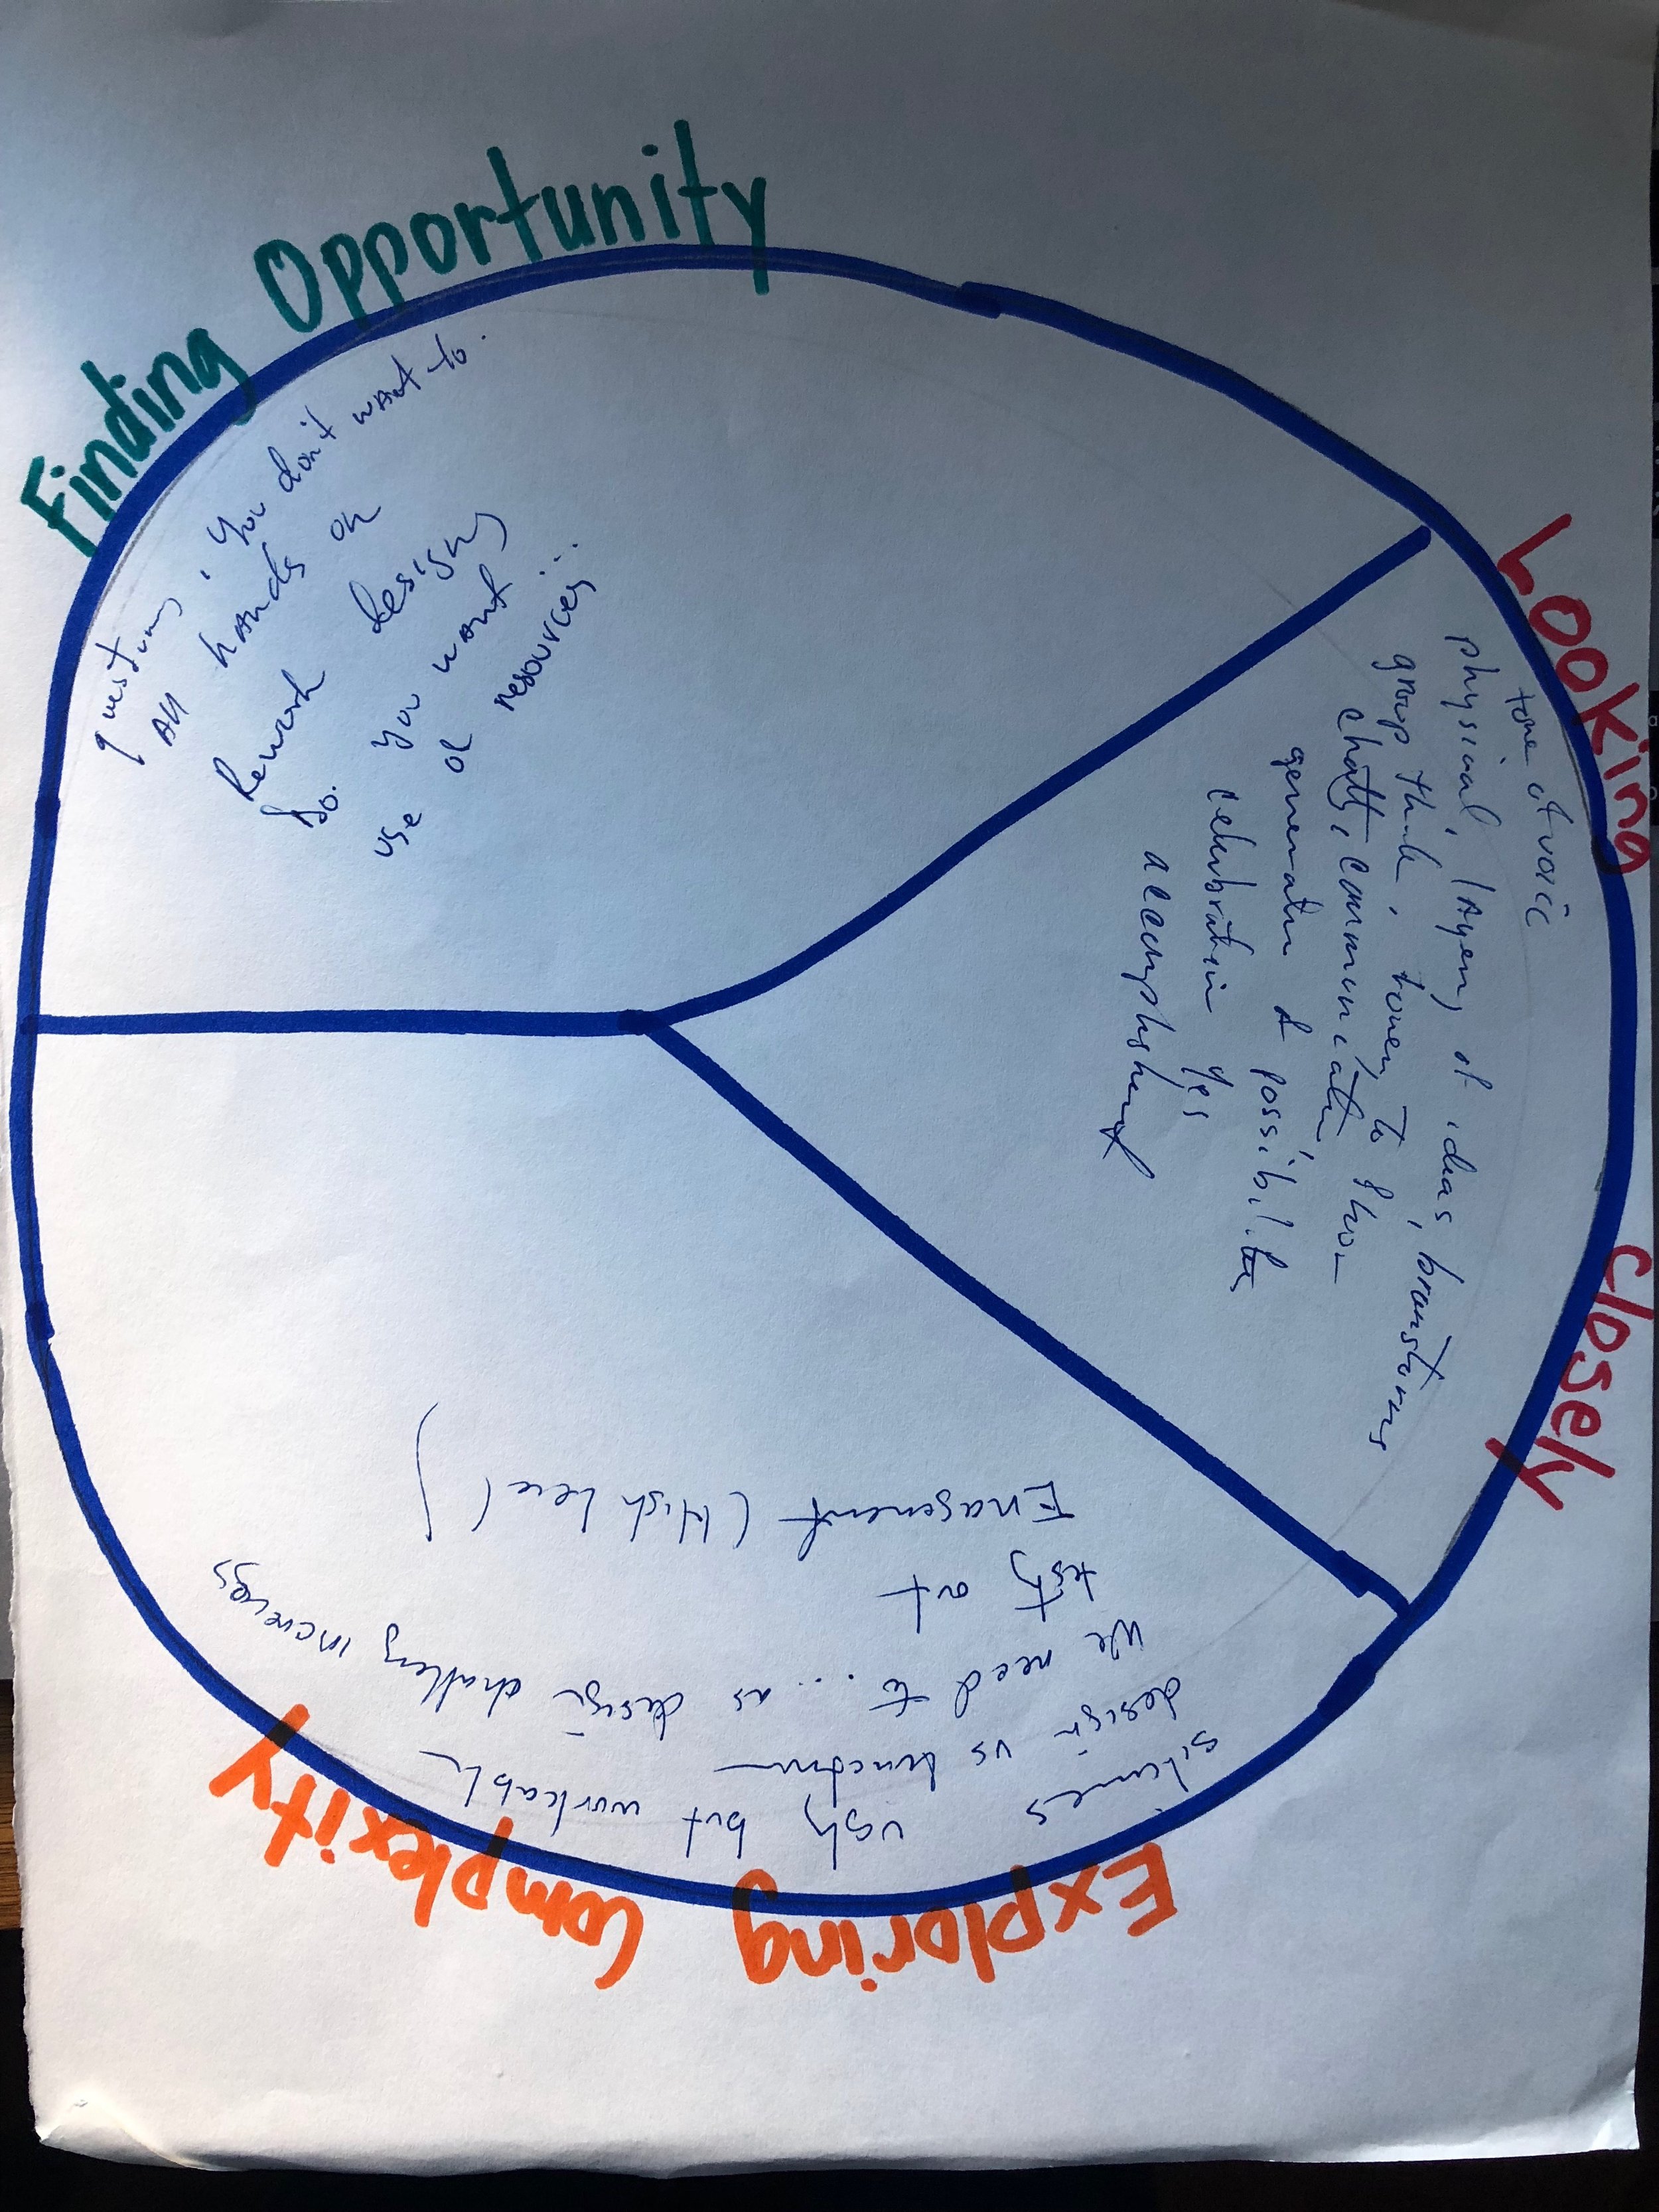 Finding Opportunity
questions, you don't want to.
All hands on
Rework design
so. you want
use of resources..
Looking Closely
tone of voice
physical, layers of ideas, branstorms
group think, tower, to
chatt, communicatin
generatin of possibilites
celebratin yes
accomplishment
Exploring Complexity
silences ugly but workable
design vs function
We need to... as design challeng increases
test out
Enagement (High level)